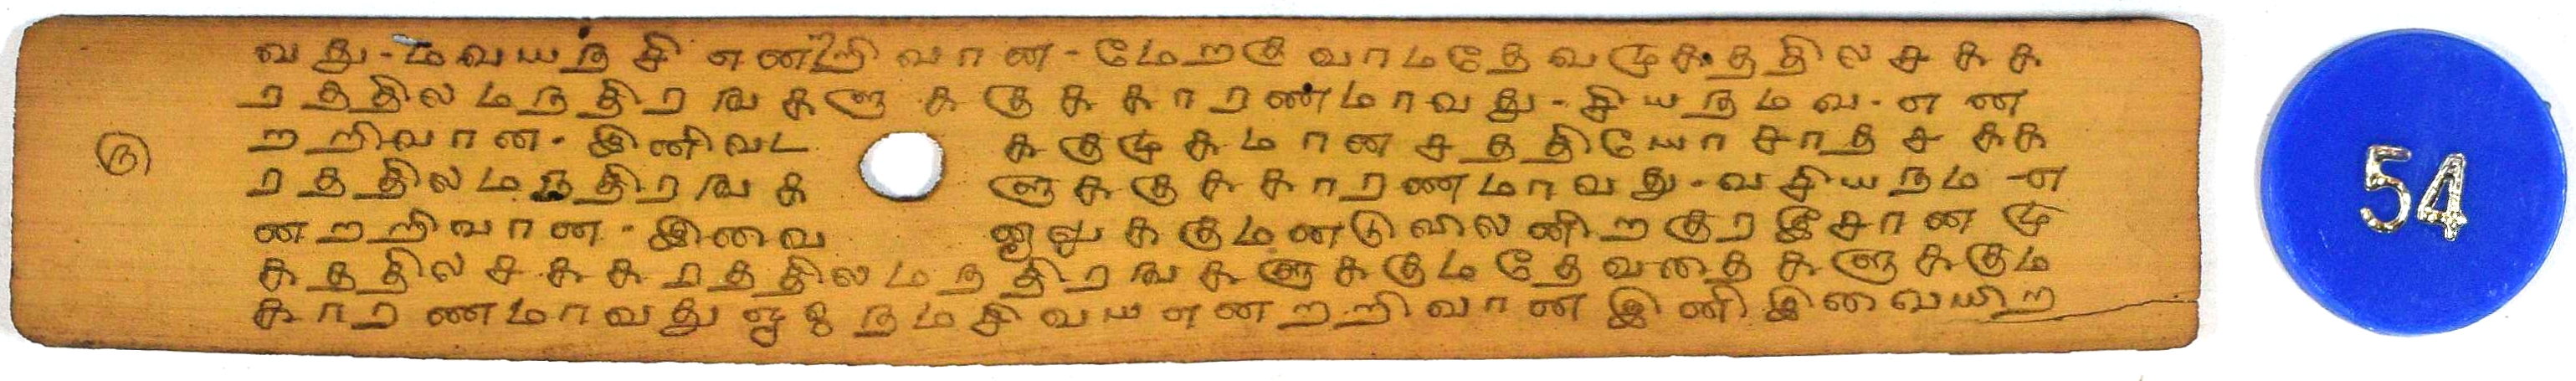 வது-மவயநசி எனறறிவான-மேறகு வாமதேவமுகதத்தில சகக
ரததிலமநதிரஙகளுககுககாரணமாவது-சியநமவ-என
றறிவான-இனிவட ககுமுகமான சததியோசாத சகக
ரததிலமநதிரஙக ளுககுககாரணமாவது-வசியநம-எ
னறறிவான-இவை நாலுககுமநடுவிலனிறகுர இசானமு
கததிலசககரததிலமநதிரஙகளுககுமதேவதைகளுககும
காரணமாவது ஓம நமசிவயஎனறறிவான இனி இவையிற
ரு
54